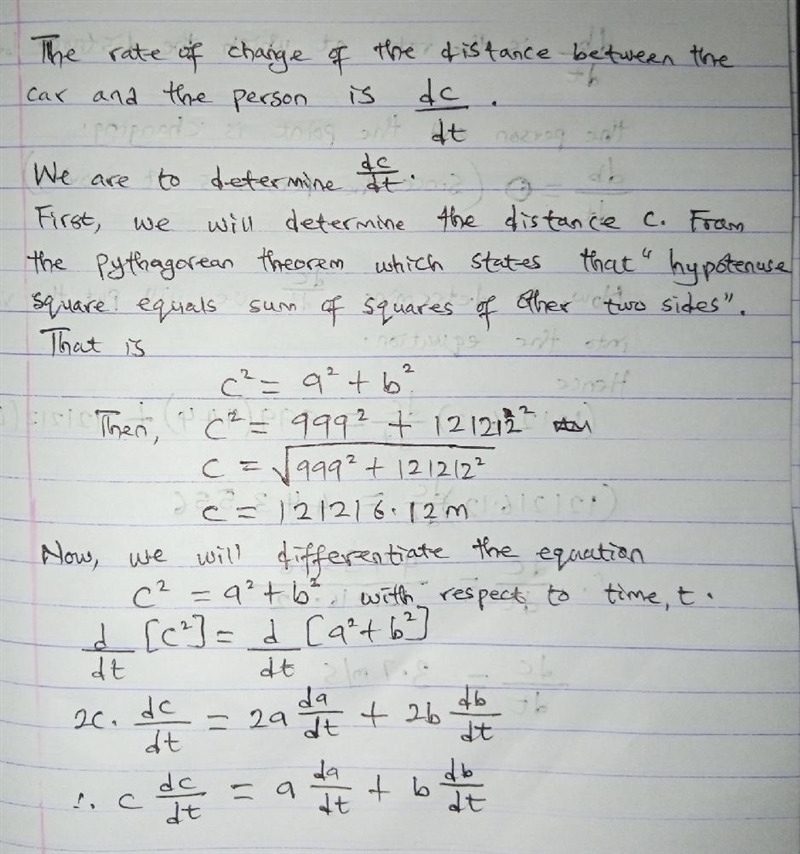 The rate of change of the distance between the
car and the person is dc/dt.
We are to determine dc/dt.
First, we will determine the distance c. From
the pythagorean theorem which states that "hypotenuse
square equals sum of squares of other two sides".
That is
c² = a² + b²
Then, c² = 999² + 121212²
c = √999² + 121212²
c = 121216.12m
Now, we will differentiate the equation
c² = a² + b². with respect to time, t.
d/dt [c²] = d/dt [a² + b²]
2c. dc/dt = 2a da/dt + 2b db/dt
∴ c dc/dt = a da/dt + b db/dt